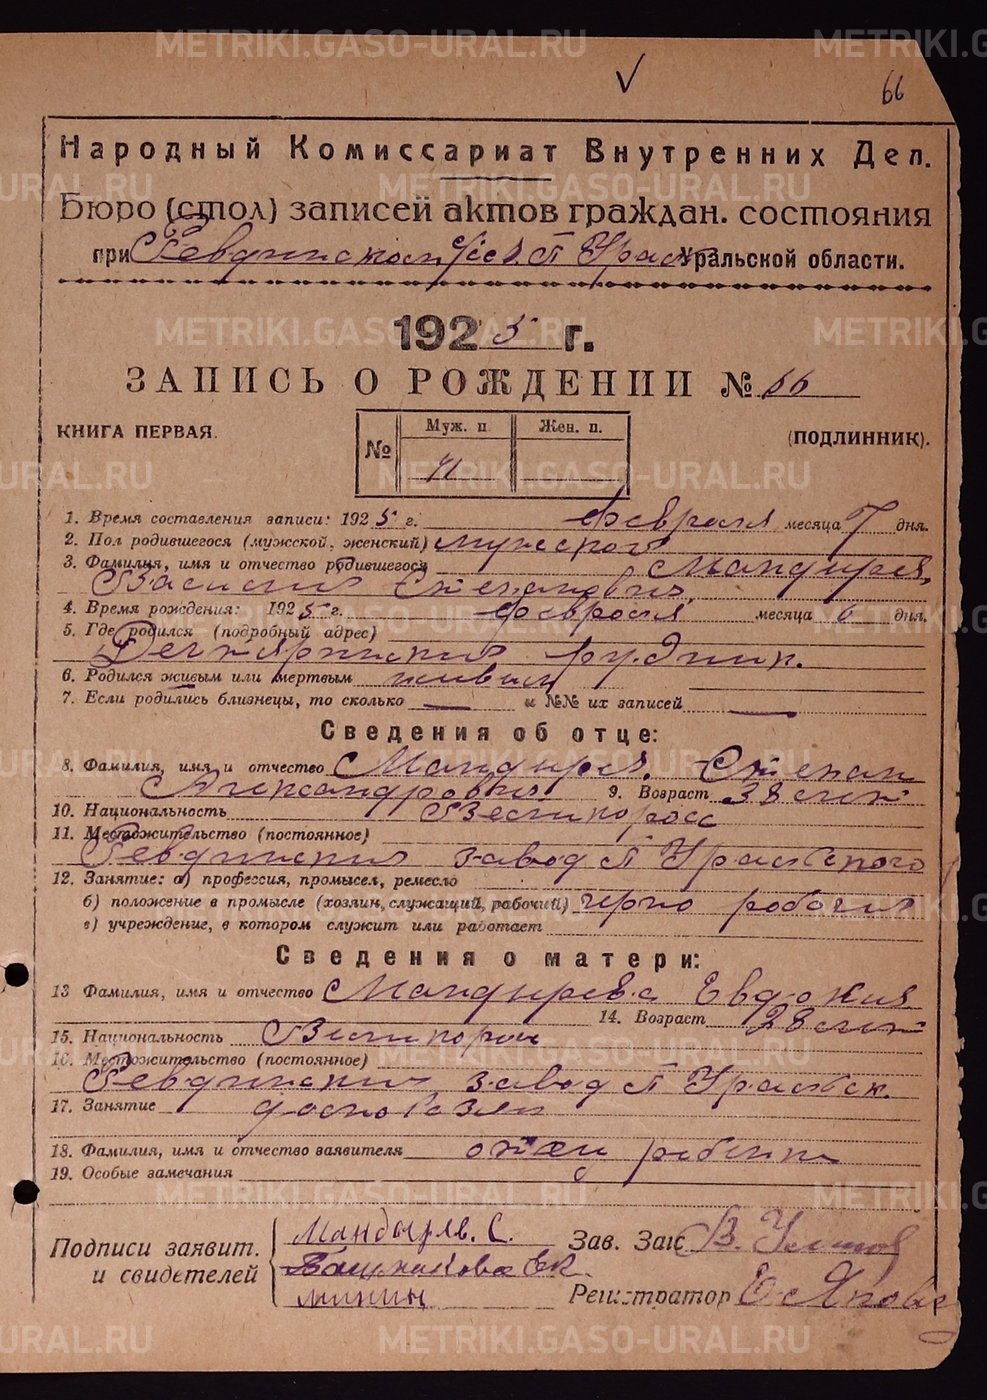 66
Народный Комиссариат Внутренних Дел.
Бюро (стол) записей актов граждан. состояния
при Ревдинском Урал Уральской области.
1925 г.
ЗАПИСЬ О РОЖДЕНИИ № 66
КНИГА ПЕРВАЯ.
(ПОДЛИННИК).
№ Муж. п. Жен. п.
41
1. Время составления записи: 1925 г. февраля месяца 7 дня.
2. Пол родившегося (мужской, женский) мужского
3. Фамилия, имя и отчество родившегося Мандырев,
Василий Степанович,
4. Время рождения: 1925 г. февраля месяца 6 дня.
5. Где родился (подробный адрес)
Дегтярский рудник.
6. Родился живым или мертвым живым
7. Если родились близнецы, то сколько — и №№ их записей —
Сведения об отце:
8. Фамилия, имя и отчество Мандырев. Степан
Александрович 9. Возраст 38 лет
10. Национальность Великоросс
11. Местожительство (постоянное)
Ревдинский завод п Уральского
12. Занятие: а) профессия, промысел, ремесло
б) положение в промысле (хозяин, служащий, рабочий) черно рабочий
в) учреждение, в котором служит или работает
Сведения о матери:
13 Фамилия, имя и отчество Мандырева Евдокия
14. Возраст 28 лет
15. Национальность Великоросс
16. Местожительство (постоянное)
Ревдинский завод п Уральск.
17. Занятие домохозяй
18. Фамилия, имя и отчество заявителя отец ребенка
19. Особые замечания
Подписи заявит. и свидетелей
Мандырев. С.
Башмакова Ек.
Зав. Загс В.
Регистратор
METRIKI.GASO-URAL.RU